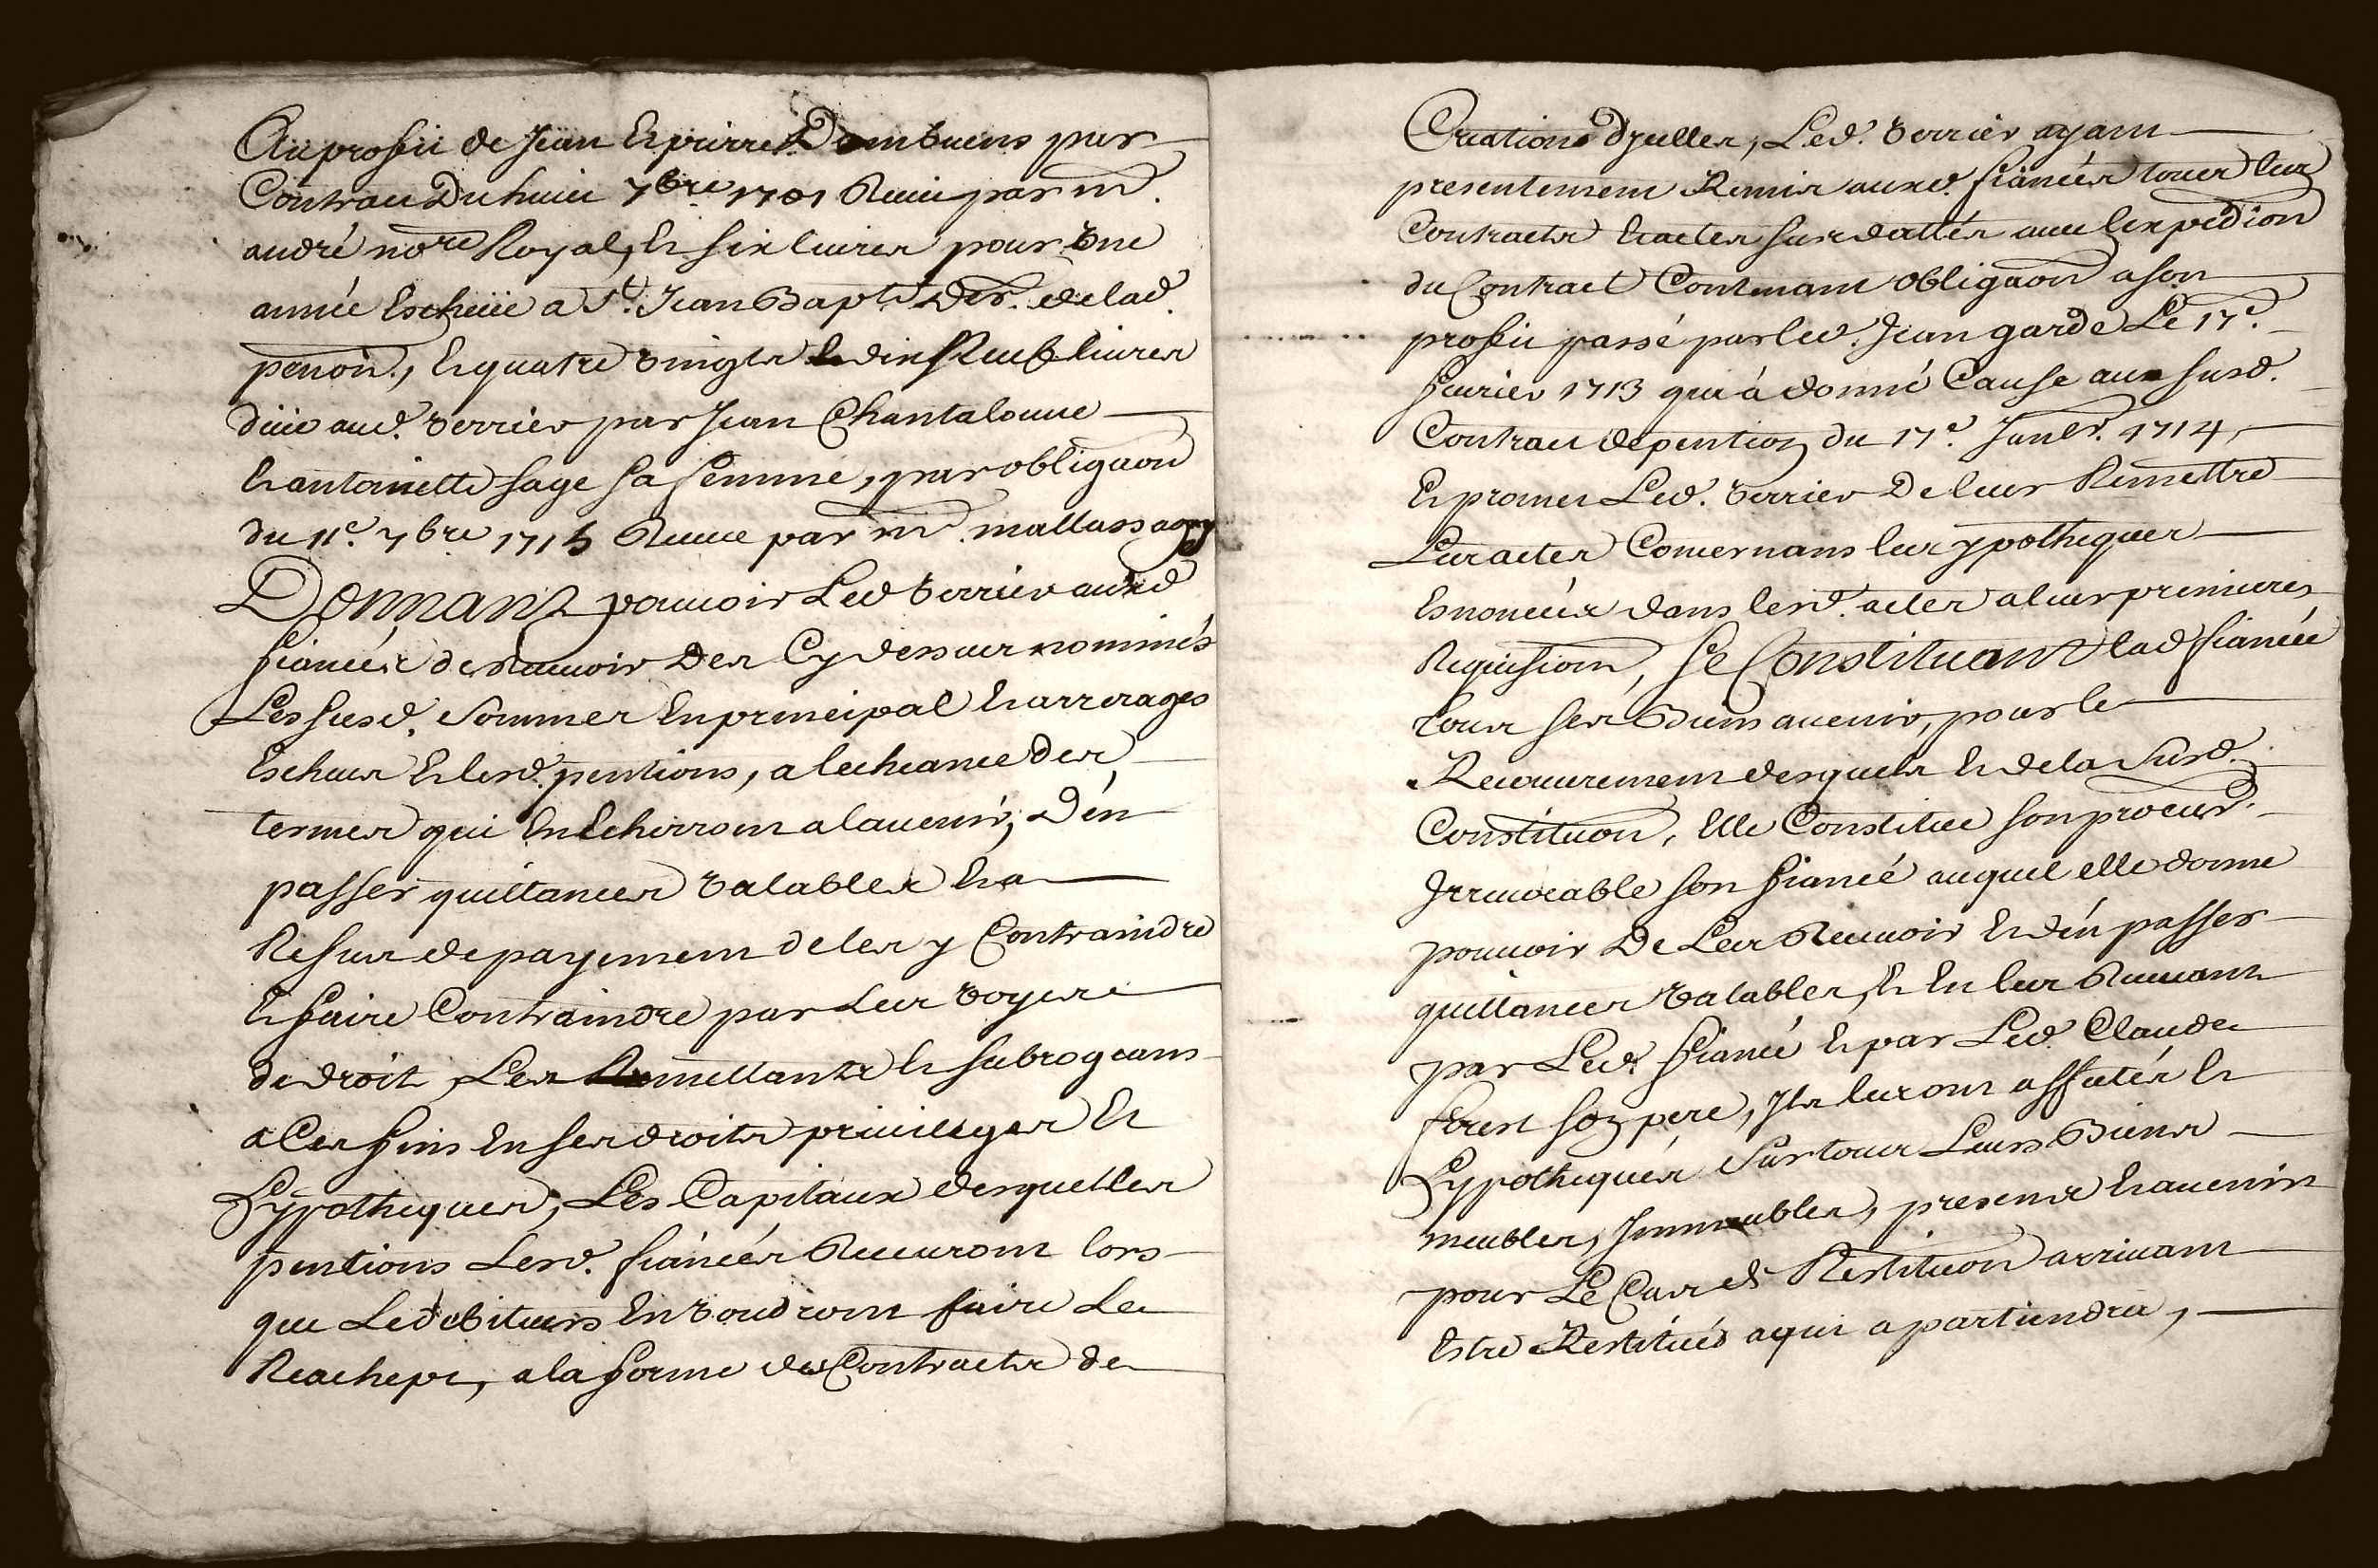 Au profiit de Jean Et pierre Dombuens par
Contract Du huiit 7bre 1701 Receu par me.
andré nore Royal, Et six liures pour Vne
année Escheüe a St. Jean Bapte Der. de lad.
penon., Et quatre Vingts dix Neuf liures
düe aud. Verrier par Jean Chantaloüue
Et antoinette sage sa femme, par obligaon
du 11e. 7bre 1715 Receue par me. mallassagny
Donnant pouuoir Led Verrier auxd
fiancés de Receuoir Des Cy dessus nommés
Les susd. sommes En principal Et arrerages
Escheus Et lesd. pentions, a lecheance des
termes qui En Echerront a laueuir, D'én
passer quittances Valables Et a
Refus de payement de les y Contraindre
Et faire Contraindre par Les Voyes
de droit, Les Remettants Et subrogeans
a Ces fins En ses droits priuileges Et
hypotheques, Les Capitaux desquelles
pentions Lesd. fiancés Receuront lors
que Led debiteurs En Voudront faire Le
Reachept, a la forme des Contracts de
Creations dyselles, Led. Verrier ayant
presentement Remis auxd. fiancés tous les
Contracts Et actes susdattés auec lexpedion
du Contract Contenant obligaon a son
profiit passé par led. Jean garde Le 17e.
feurier 1713 qui à donné Cause aux susd.
Contract de pention du 17e. Januer. 1714,
Et promet Led. Verrier De leur Remettre
Les actes Concernans les ypotheques
Esnoncées dans lesd. actes a leurs premieres
Requision, se Constituant lad fiancée
tous ses Biens auenir, pour le
Recouurement desquels Et de la susd.
Constituon, Elle Constitue son procur.
Irreuocable son fiancé auquel elle donne
pouuoir De Les Receuoir Et d'én passer
quittances Valables, Et En les Receuant
par Led. fiancé Et par Led. Claude
forest son pere, Ils les ont affectés Et
hypothequés sur tous Leurs Biens
meubles, Immeubles, presens Et auenirs
pour Le Cas de Restituon arriuant
Estre Restitués a qui apartiendra,